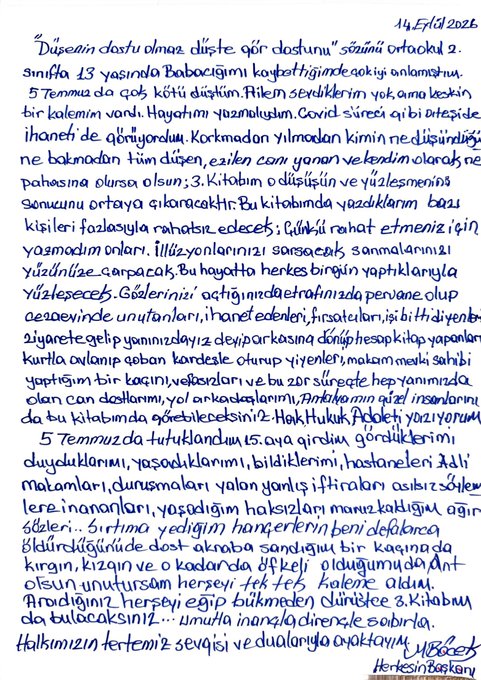 14 Eylül 2026
"Düşenin dostu olmaz düşte gör dostunu" sözünü ortaokul 2.
sınıfta 13 yaşında Babacığımı kaybettiğimde çok iyi anlamıştım.
5 Temmuz da çok kötü düştüm. Ailem sevdiklerim yok, ama keskin
bir kalemim vardı. Hayatımı yazmalıydım. Covid süreci gibi öteside
ihaneti de görüyordum. Korkmadan yılmadan kimin ne düşündüğü
ne bakmadan tüm düşen, ezilen canı yanan ve kendim olarak ne
pahasına olursa olsun; 3. Kitabım o düşüşün ve yüzleşmenin
sonucunu ortaya çıkaracaktır. Bu kitabımda yazdıklarım bazı
kişileri fazlasıyla rahatsız edecek; Çünkü rahat etmeniz için
yazmadım onları. İllüzyonlarınızı sarsacak sanmalarınızı
yüzünüze çarpacak. Bu hayatta herkes birgün yaptıklarıyla
yüzleşecek. Gözlerinizi açtığınızda etrafınızda pervane olup
cezaevinde unutanları, ihanet edenleri, fırsatçıları, işi bitti diyenleri
ziyarete gelip yanınızdayız deyip arkasına dönüp hesap kitap yapanları
kurtla avlanıp çoban kardeşle oturup yiyenleri, makam mevki sahibi
yaptığım bir kaçını, vefasızları ve bu zor süreçte hep yanımızda
olan can dostlarımı, yol arkadaşlarımı, Antalyamın güzel insanlarını
da bu kitabımda görebileceksiniz. Hak, Hukuk, Adaleti yazıyorum
5 Temmuz da tutuklandım 15. aya girdim gördüklerimi
duyduklarımı, yaşadıklarımı, bildiklerimi, hastaneleri Adli
makamları, duruşmaları yalan yanlış iftiraları asılsız söylem
lere inananları, yaşadığım haksızları maruz kaldığım ağır
sözleri.. sırtıma yediğim hançerlerin beni defalarca
öldürdüğünü de dost akraba sandığım bir kaçınada
kırgın, kızgın ve o kadarda öfkeli olduğumuda, Ant
olsun unutursam herşeyi tek tek kaleme aldım.
Aradığınız herşeyi eğip bükmeden dürüstce 3. Kitabım
da bulacaksınız... umutla inançla dirençle sabırla.
Halkımızın tertemiz sevgisi ve dualarıyla ayaktayım.
M Böcek
Herkesin Başkanı